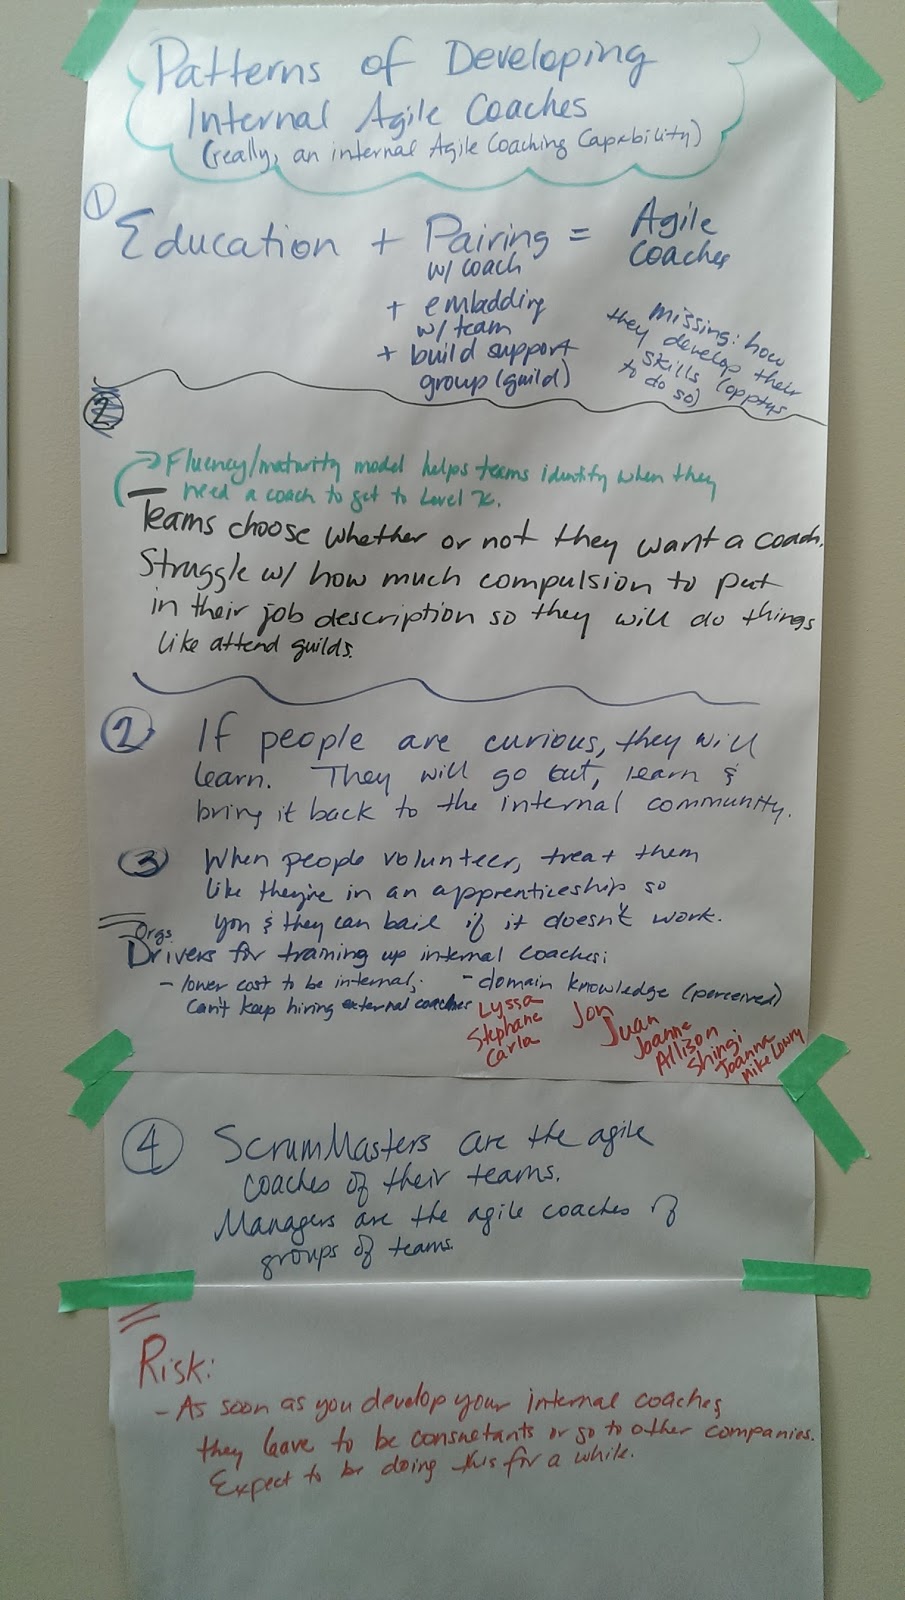 Patterns of Developing
Internal Agile Coaches
(really, an internal Agile Coaching Capability)
1
Education + Pairing = Agile Coaches
w/ coach
+ embedding
w/ team
+ build support
group (guild)
missing: how
they develop their
skills (opptys
to do so)
2
Fluency/maturity model helps teams identify when they
need a coach to get to Level X.
Teams choose whether or not they want a coach.
Struggle w/ how much compulsion to put
in their job description so they will do things
like attend guilds.
2 If people are curious, they will
learn. They will go out, learn &
bring it back to the internal community.
3 When people volunteer, treat them
like they're in an apprenticeship so
you & they can bail if it doesn't work.
Orgs
Drivers for training up internal coaches:
- lower cost to be internal,
can't keep hiring external coaches
- domain knowledge (perceived)
Lyssa
Stephane
Carla
Jon
Juan
Joanne
Allison
Shingi
Joanna
Mike Lowry
4 ScrumMasters are the agile
coaches of their teams.
Managers are the agile coaches of
groups of teams.
Risk:
- As soon as you develop your internal coaches,
they leave to be consultants or go to other companies.
Expect to be doing this for a while.